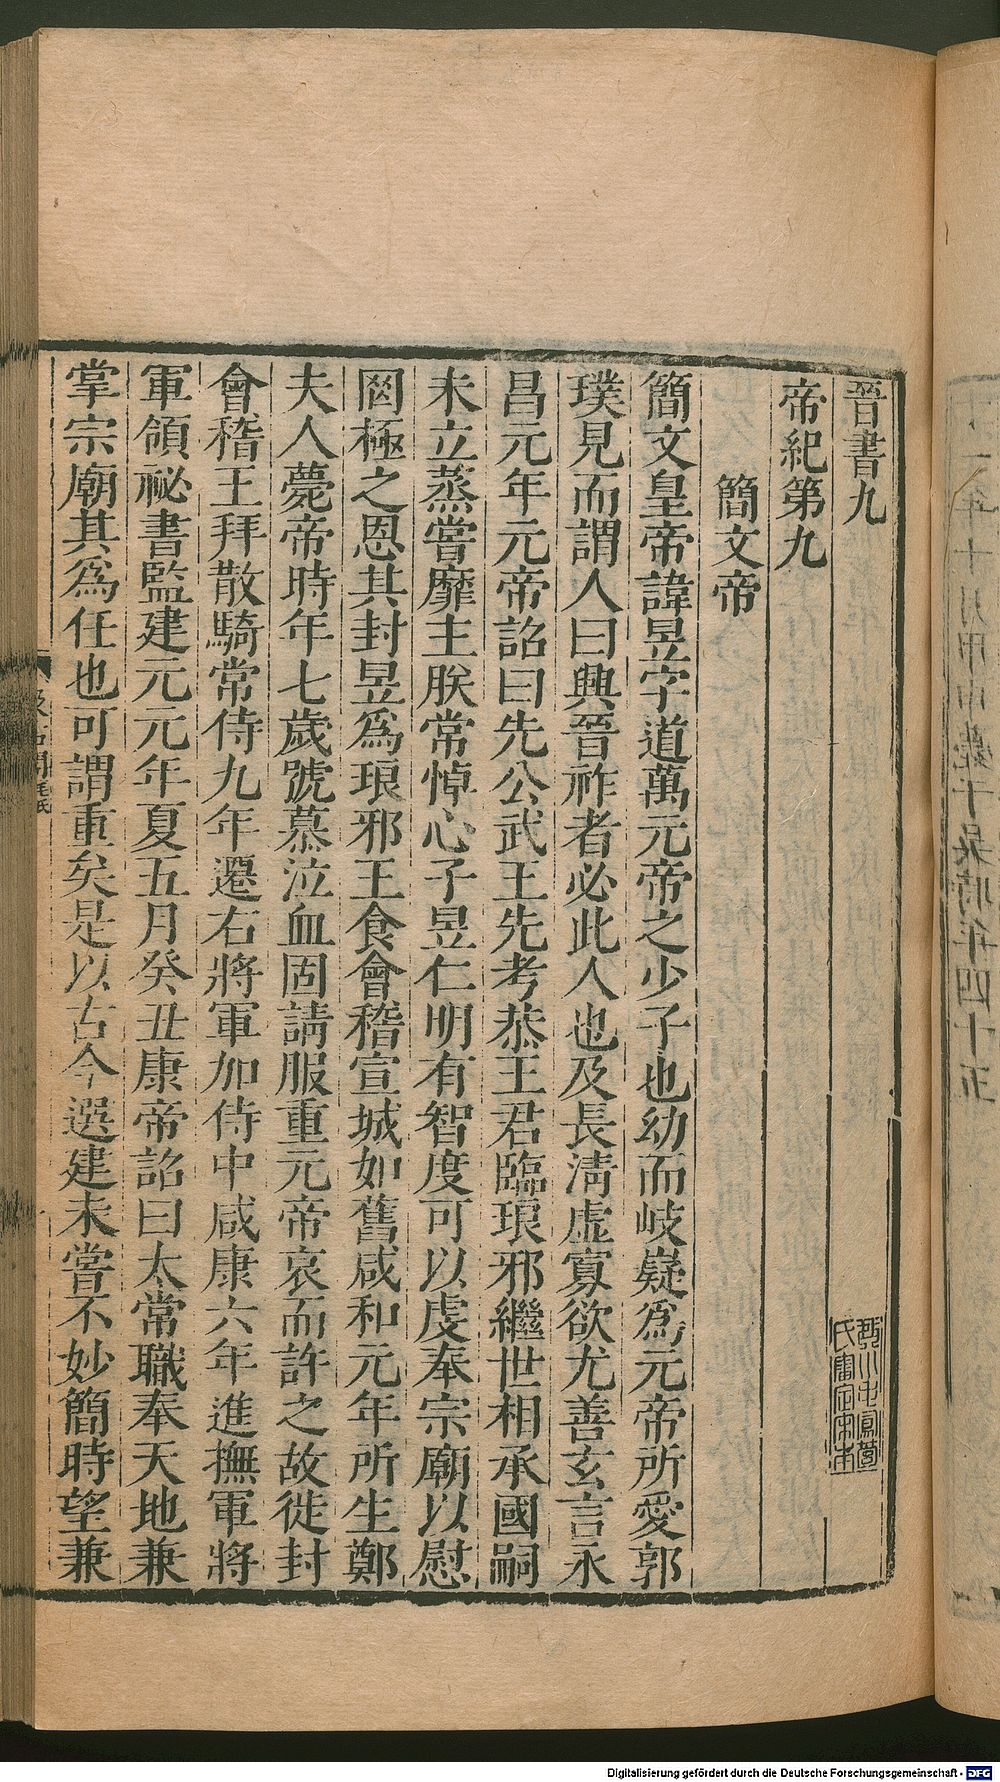 晉書九
帝紀第九
簡文帝
簡文皇帝諱昱字道萬元帝之少子也幼而岐嶷爲元帝所愛郭
璞見而謂人曰興晉祚者必此人也及長淸虛寡欲尤善玄言永
昌元年元帝詔曰先公武王先考恭王君臨琅邪繼世相承國嗣
未立蒸嘗靡主朕常悼心子昱仁明有智度可以虔奉宗廟以慰
罔極之恩其封昱爲琅邪王食會稽宣城如舊咸和元年所生鄭
夫人薨帝時年七歲號慕泣血固請服重元帝哀而許之故徙封
會稽王拜散騎常侍九年遷右將軍加侍中咸康六年進撫軍將
軍領祕書監建元元年夏五月癸丑康帝詔曰太常職奉天地兼
掌宗廟其爲任也可謂重矣是以古今選建未嘗不妙簡時望兼
Digitalisierung gefördert durch die Deutsche Forschungsgemeinschaft - DFG